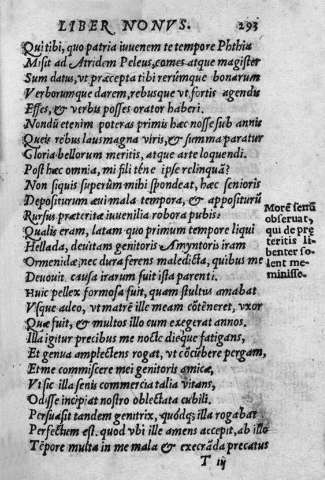 LIBER NONVS. 293
Qui tibi, quo patria iuuenem te tempore Phthia
Misit ad Atridem Peleus, comes atque magister
Sum datus, vt præcepta tibi rerúmque bonarum
Verborumque darem, rebusque vt fortis agendis
Esses, & verbis posses orator haberi.
Nondū etenim poteras primis hæc nosse sub annis
Queis rebus laus magna viris, & summa paratur
Gloria bellorum meritis, atque arte loquendi.
Post hæc omnia, mi fili tène ipse relinquā?
Non si quis superûm mihi spondeat, hæc senioris
Depositurum æui mala tempora, & appositurū
Rursus præterita iuuenilia robora pubis:
Qualis eram, latam quo primum tempore liqui
Hellada, deuitans genitoris Amyntoris iram
Ormenidæ; nec dura ferens maledicta, quibus me
Deuouit. causa irarum fuit ista parenti.
Huic pellex formosa fuit, quam stultus amabat
Vsque adeo, vt matrē ille meam cōtēneret, vxor
Quæ fuit, & multos illo cum exegerat annos.
Illa igitur precibus me nocte dieque fatigans,
Et genua amplectens rogat, vt cōcūbere pergam,
Et me commiscere mei genitoris amicæ,
Vt sic illa senis commercia talia vitans,
Odisse incipiat nostro oblectata cubili.
Persuasit tandem genitrix, quódq; illa rogabat
Perfectum est. quod vbi ille amens accepit, ab illo
Tēpore multa in me mala & execrāda precatus
T iij
Morē senū
obseruat,
qui de præ
teritis li
benter so
lent me-
minisse.